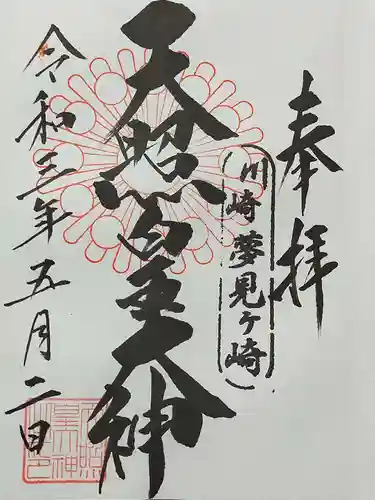 奉拝
川崎 夢見ヶ崎
天照皇大神
令和三年五月二日